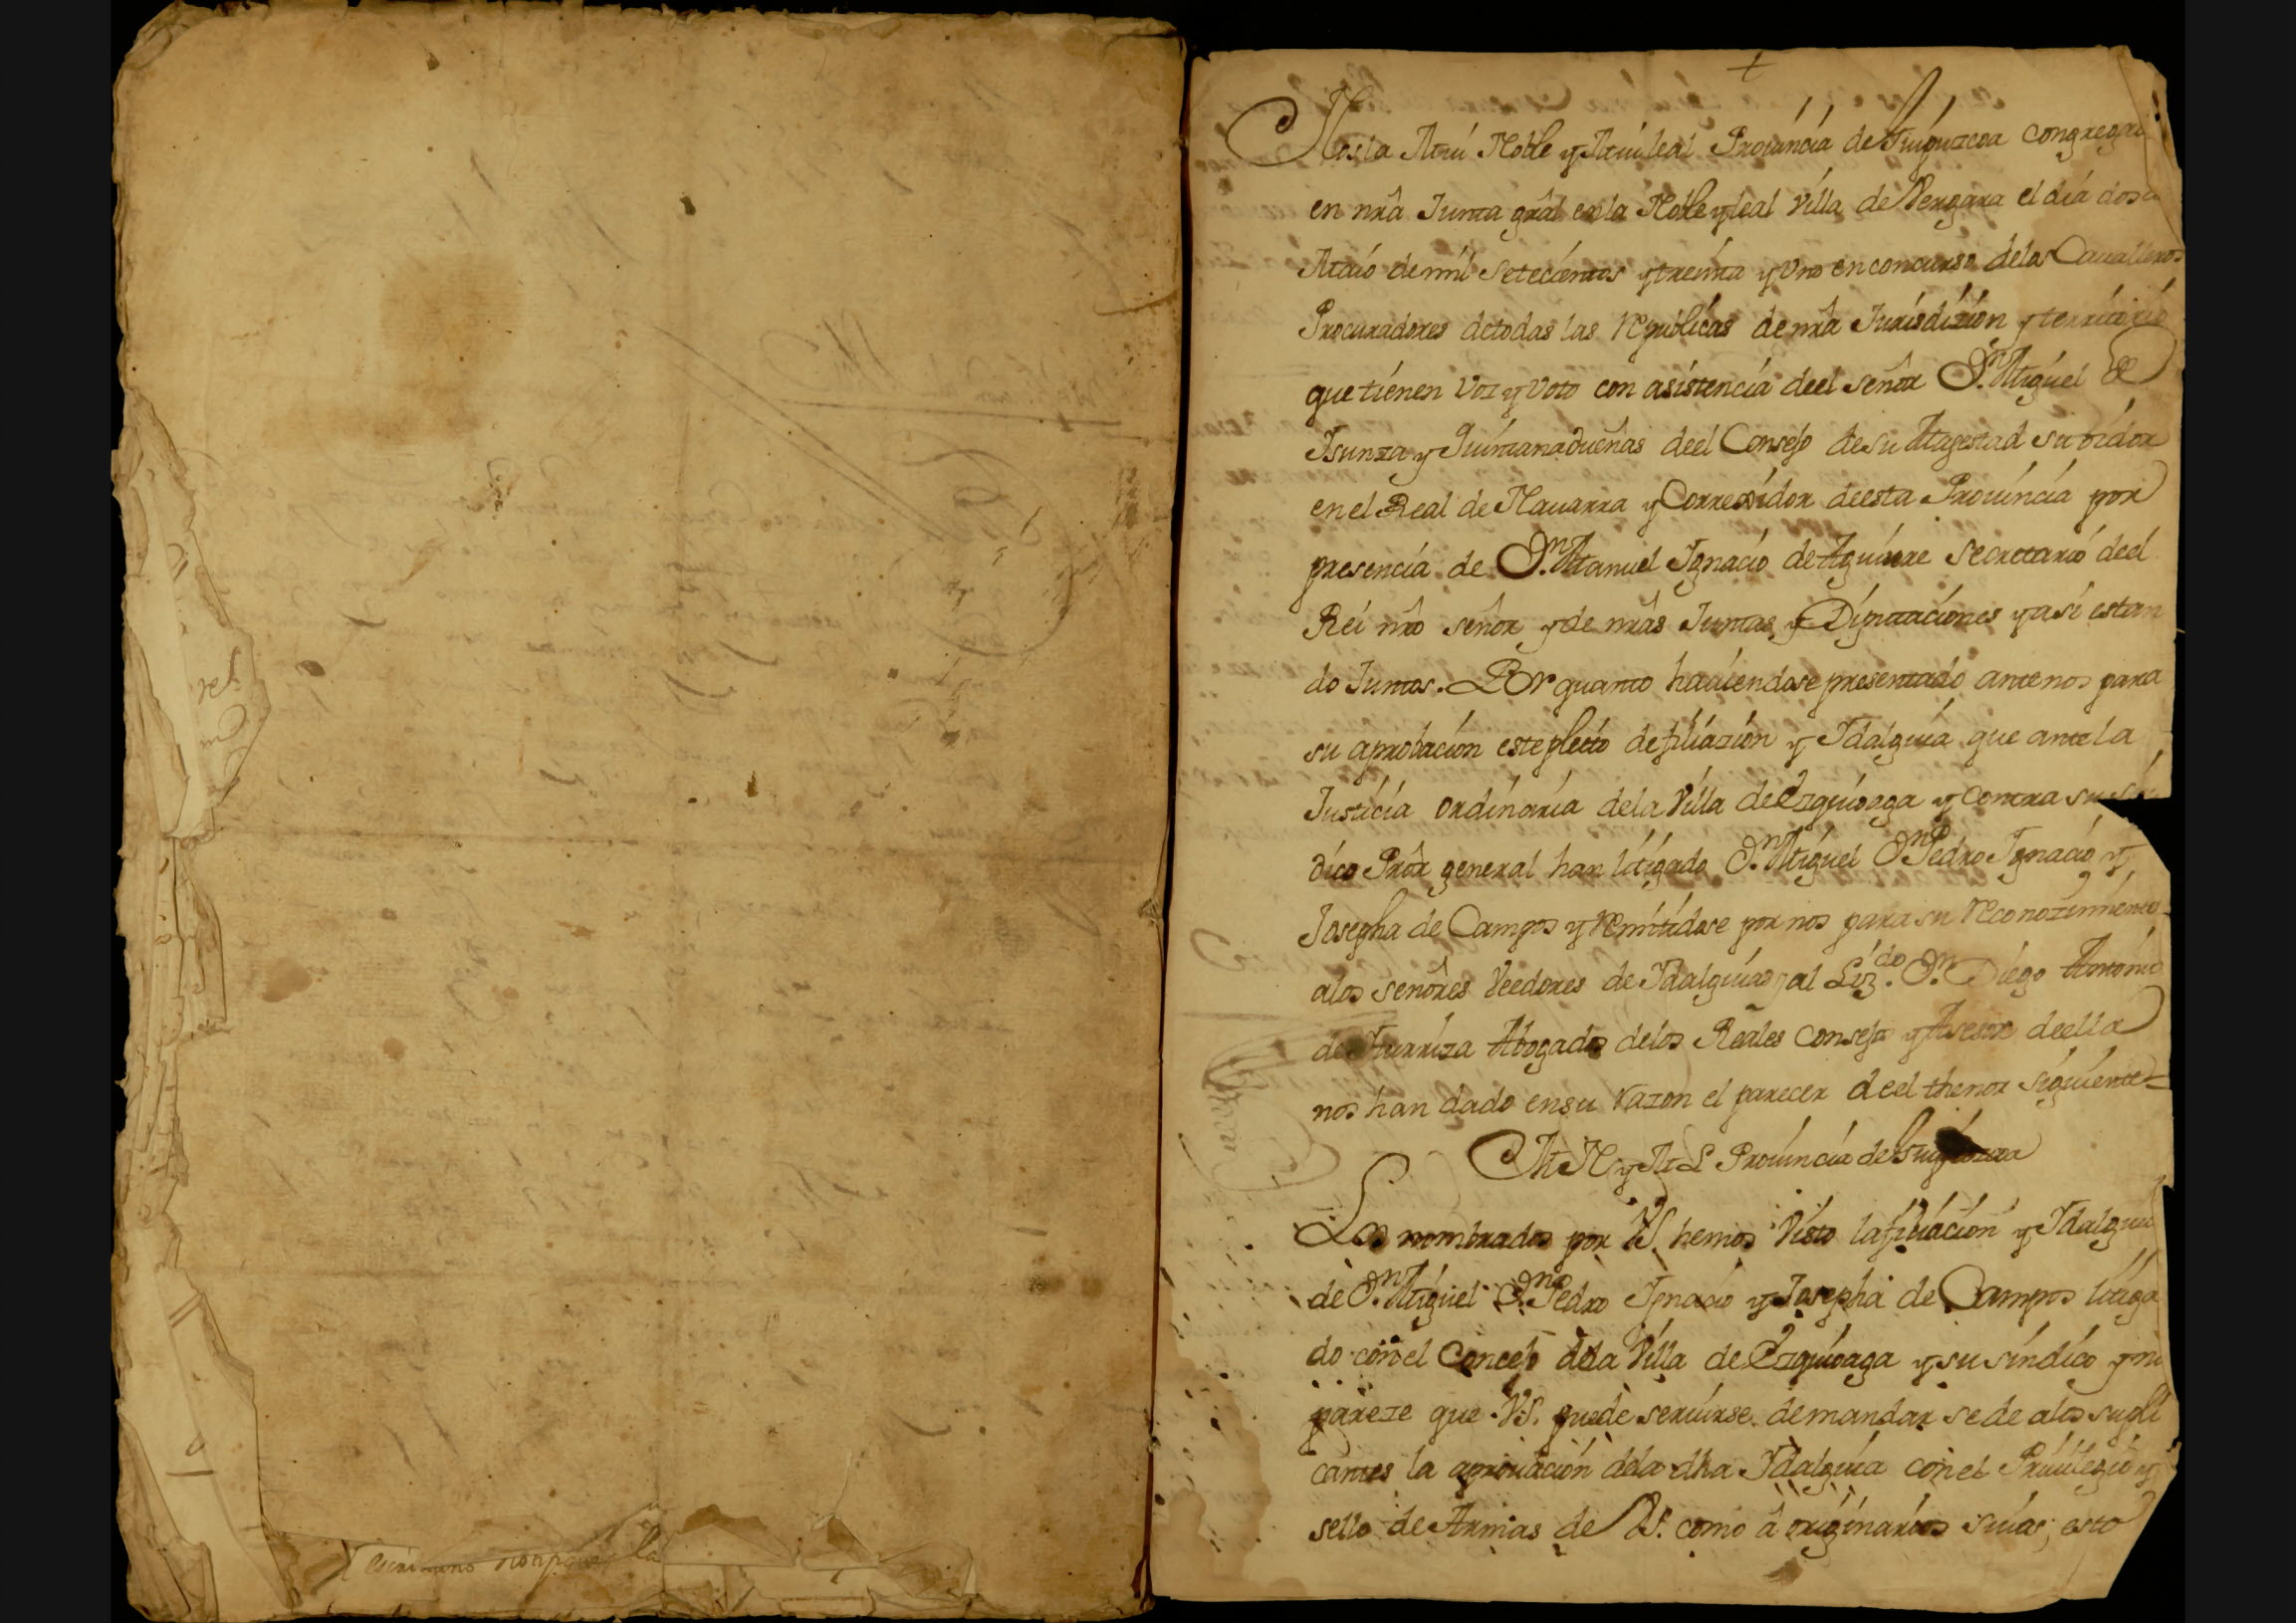 ref
escriuano
la
Nos la Mui Noble y Mui leal Prouincia de Guipuzcoa congrega
en nrâ Junta grâl en la Noble y leal Villa de Vergara el dia dos
Maio de mil setecientos y treinta y uno en concurso de los Caualleros
Procuradores de todas las Republicas de nrâ Jurisdizion y territorio
que tienen voz y voto con asistencia deel señor Dn. Miguel de
Isunza y Quintanadueñas deel Consejo de su Magestad su oidor
en el Real de Nauarra y Correxidor de esta Prouincia por
presencia de Dn. Manuel Ignacio de Aguirre secretario deel
Rei nrô señor y de nrâs Juntas y Diputaciones y asi estan
do Juntos. Por quanto hauiendose presentado ante nos para
su aprobacion este pleito de filiazion y Idalguia que ante la
Justicia ordinaria de la Villa de Ezquioaga y contra su sin
dico Prôr general han litigado Dn. Miguel Dn. Pedro Ignacio y
Josepha de Campos y Remitidose por nos para su Reconozimiento
a los señores Veedores de Idalguias y al Lizdo. Dn. Diego Antonio
de Iturriza Abogado de los Reales Consejos y Asesor de ella
nos han dado en su razon el parecer deel thenor siguiente=
M N y M L Prouincia de Guipuzcoa
Los nombrados por VS. hemos visto la filiacion y Idalguia
de Dn. Miguel Dn. Pedro Ignacio y Josepha de Campos litiga
do con el Concejo de la Villa de Ezquioaga y su sindico y nos
pareze que VS. puede seruirse de mandar se de a los supli
cantes la aprouacion de la dha Idalguia con el Priuilegio y
sello de Armas de VS. como â originarios suios; esto